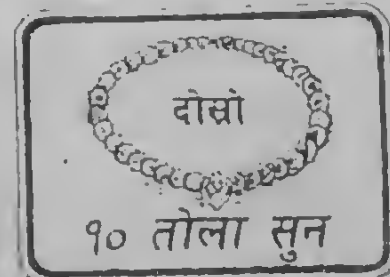 दोस्रो
१० तोला सुन